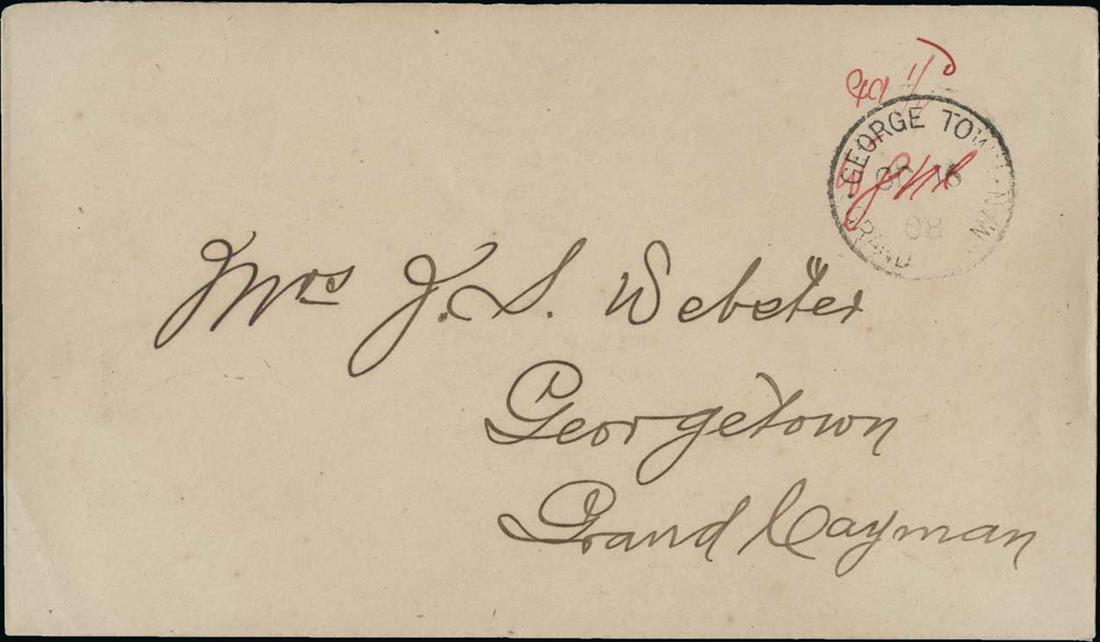 GEORGE TOWN
OC 16
08
GRAND MAN
Mrs J. S. Webster
Georgetown
Grand Cayman